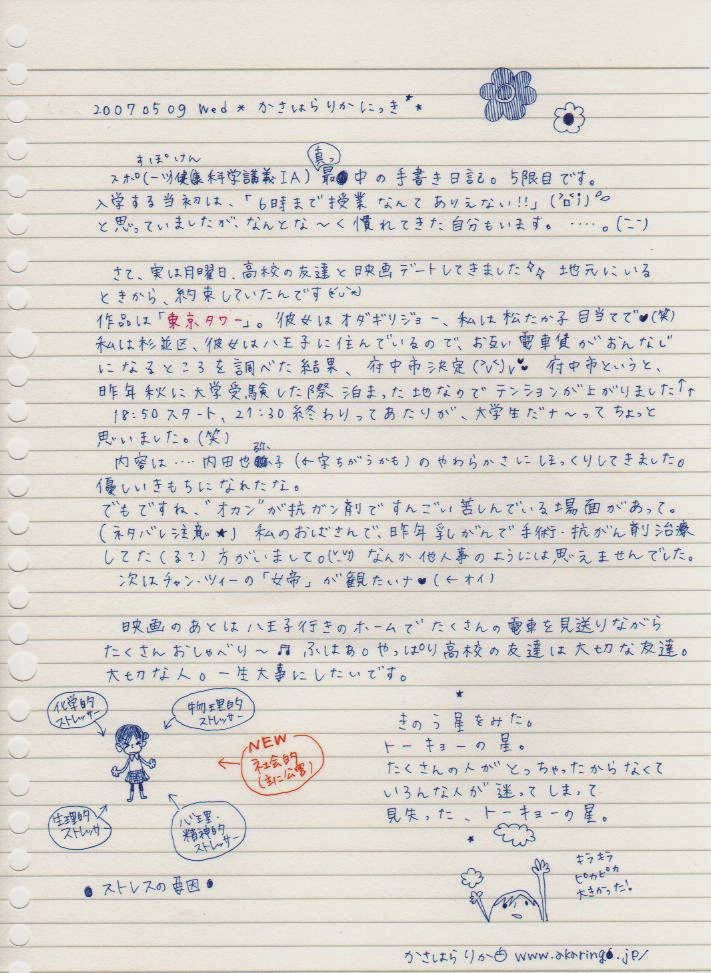 20070509 Wed * かさはらりかにっき
すぽけん
真っ
スポ(ーツ)健康科学講義IA) 最中の手書き日記。5限目です。
入学する当初は、「6時まで授業なんてありえない!!」
と思っていましたが、なんとな〜く慣れてきた自分もいます。……。
さて、実は月曜日、高校の友達と映画デートしてきました 地元にいる
ときから、約束していたんです
作品は「東京タワー」。彼女はオダギリジョー、私は松たか子目当てで♥(笑)
私は杉並区、彼女は八王子に住んでいるので、お互い電車賃がおんなじ
になるところを調べた結果、府中市決定 府中市というと、
昨年秋に大学受験した際泊まった地なのでテンションが上がりました↑↑
18:50スタート、21:30終わりってあたりが、大学生だナ〜ってちょっと
思いました。(笑)
弥、
内容は‥‥内田也子(←字ちがうかも)のやわらかさにほっくりしてきました。
優しいきもちになれたな。
でもですね、"オカン"が抗ガン剤ですんごい苦しんでいる場面があって。
(ネタバレ注意★) 私のおばさんで、昨年乳がんで手術・抗がん剤治療
してた(る?)方がいまして。 なんか他人事のようには思えませんでした。
次はチャン・ツィーの「女帝」が観たいナ♥(←オイ)
映画のあとは八王子行きのホームでたくさんの電車を見送りながら
たくさんおしゃべり〜♫ ふはぁ。やっぱり高校の友達は大切な友達。
大切な人。一生大事にしたいです。
化学的
ストレッサー
物理的
ストレッサー
NEW
社会的
(主に公害)
生理的
ストレッサー
心理・
精神的
ストレッサー
●ストレスの要因●
きのう星をみた。
トーキョーの星。
たくさんの人がとっちゃったからなくて
いろんな人が迷ってしまって
見失った、トーキョーの星。
キラキラ
ピカピカ
大きかった!
かさはらりか www.akaringo.jp/